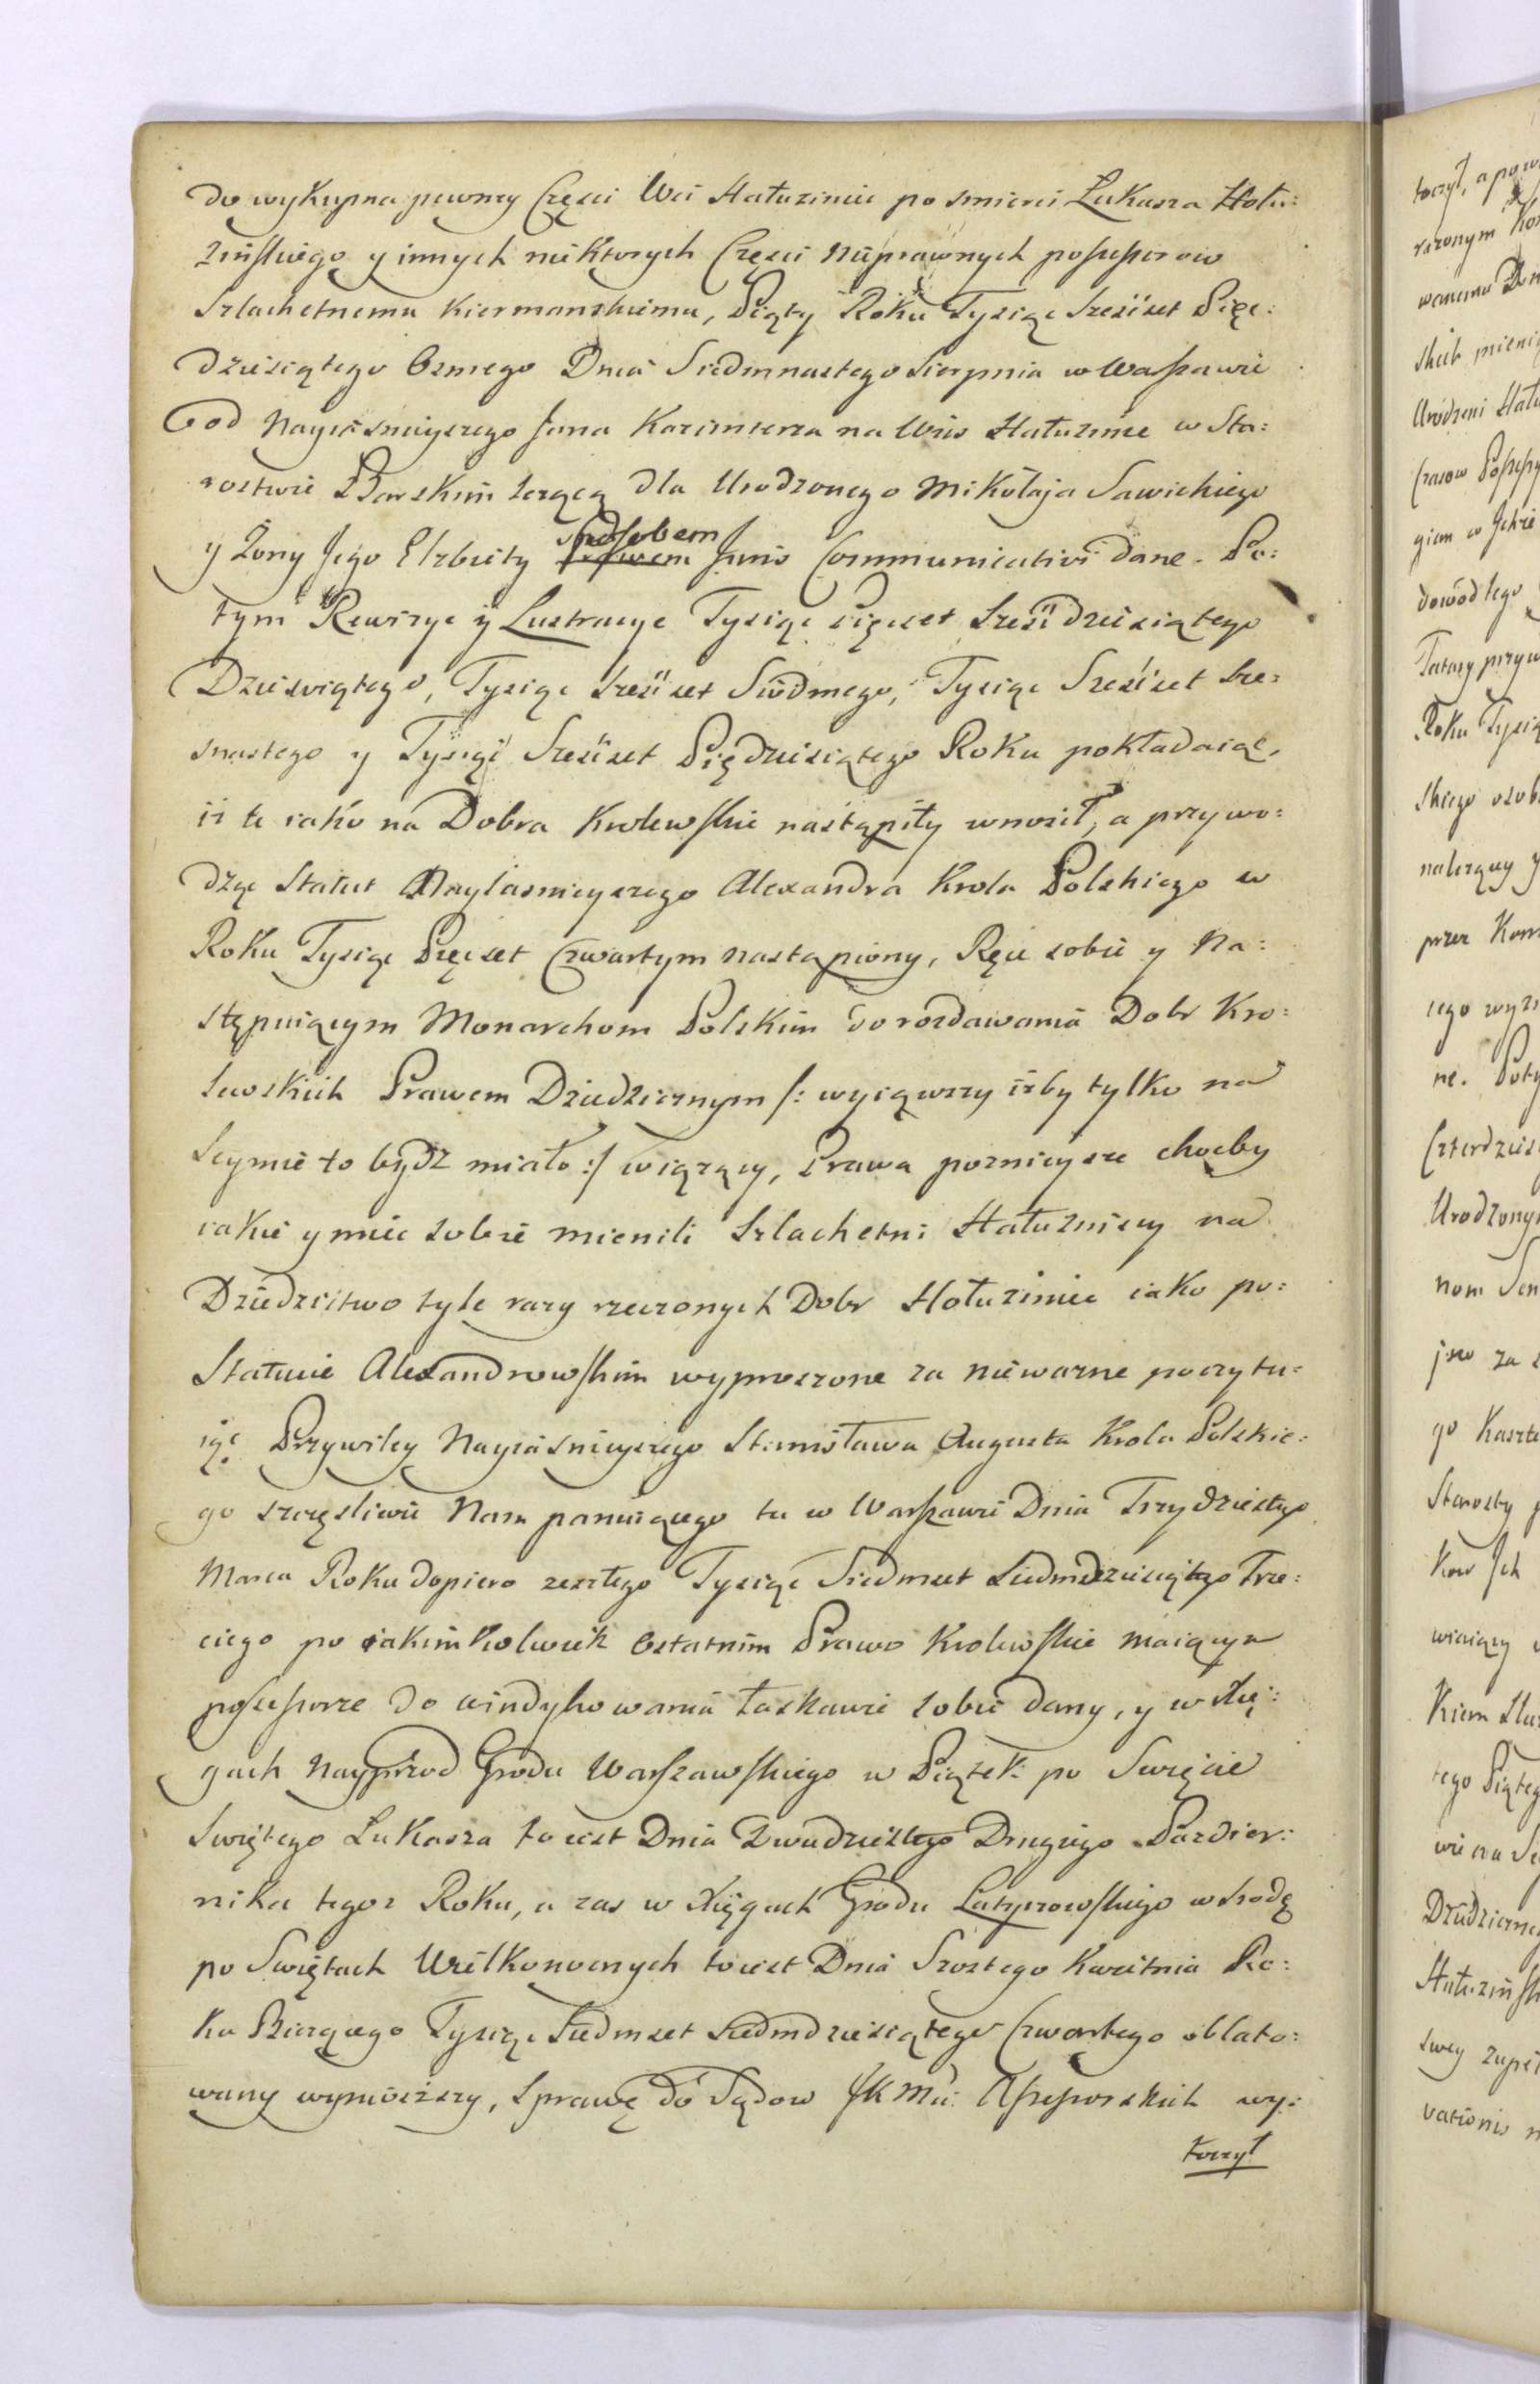 do wykupna pewney Części Wsi Hałuziniec po smierci Łukasza Hołu:
zinskiego y innych niektorych Części nieprawnych possessorow
Szlachetnemu Kiermanskiemu, Piąty Roku Tysiąc Szesćset Pięc:
dziesiątego Osmego Dnia Siedmnastego Sierpnia w Warszawie
od Nayiasnieyszego Jana Kazimierza na Wieś Hałuzinie w Sta:
rostwie Barskim lezącą dla Urodzonego Mikołaja Sawickiego
y Żony Jego Elzbiety sposobem Juris Communicativi dane. Po:
tym Rewizye y Lustracye Tysiąc pięcset Sześćdziesiątego
Dziewiątego, Tysiąc Sześćset Siodmego, Tysiąc Sześćset Sze:
snastego y Tysiąc Sześćset Pięcdziesiątego Roku pokładaiąc,
iż te iako na Dobra Krolewskie nastąpiły wnosił, a przywo:
dząc Statut Nayiasnieyszego Alexandra Krola Polskiego w
Roku Tysiąc Pięcset Czwartym nastąpiony, Ręce sobie y Na:
stępuiącym Monarchom Polskim do rozdawania Dobr Kro:
lewskich Prawem Dziedzicznym /: wyiąwszy iżby tylko na
Seymie to bydz miało :/ wiążący, Prawa poznieysze choćby
iakie y mieć sobie mienili Szlachetni Hałuznicy na
Dziedzictwo tyle razy rzeczonych Dobr Hołuziniec iako po:
Statucie Alexandrowskim wyproszone za nieważne poczytu:
iąc Przywiley Nayiasnieyszego Stanisława Augusta Krola Polskie:
go szczęsliwie Nam panuiącego tu w Warszawie Dnia Trzydziestego
Marca Roku dopiero zeszłego Tysiąc Siedmset Siedmdziesiątego Trze:
ciego po iakimkolwiek Ostatnim Prawo Krolewskie maiącym
possessorze do windykowania łaskawie sobie dany, y w Xię:
gach Nayprzod Grodu Warszawskiego w Piątek po Swięcie
Swiętego Łukasza to iest Dnia Dwudziestego Drugiego Pazdzier:
nika tegoz Roku, a zas w Xięgach Grodu Latyczowskiego w Srodę
po Swiętach Wielkonocnych to iest Dnia Szostego Kwietnia Ro:
ku Biezącego Tysiąc Siedmset Siedmdziesiątego Czwartego oblato:
wany wyniosłszy, Sprawę do Sądow JK Mci Assessorskich wy:
toczył